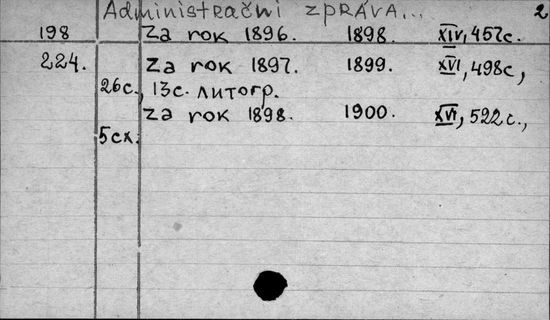 Administrační zpráva... 2
198 Za rok 1896. 1898. XIV, 457с.
224. Za rok 1897. 1899. XVI, 498с,
26с., 13с. литогр.
Za rok 1898. 1900. XVI, 522с.,
5сх.